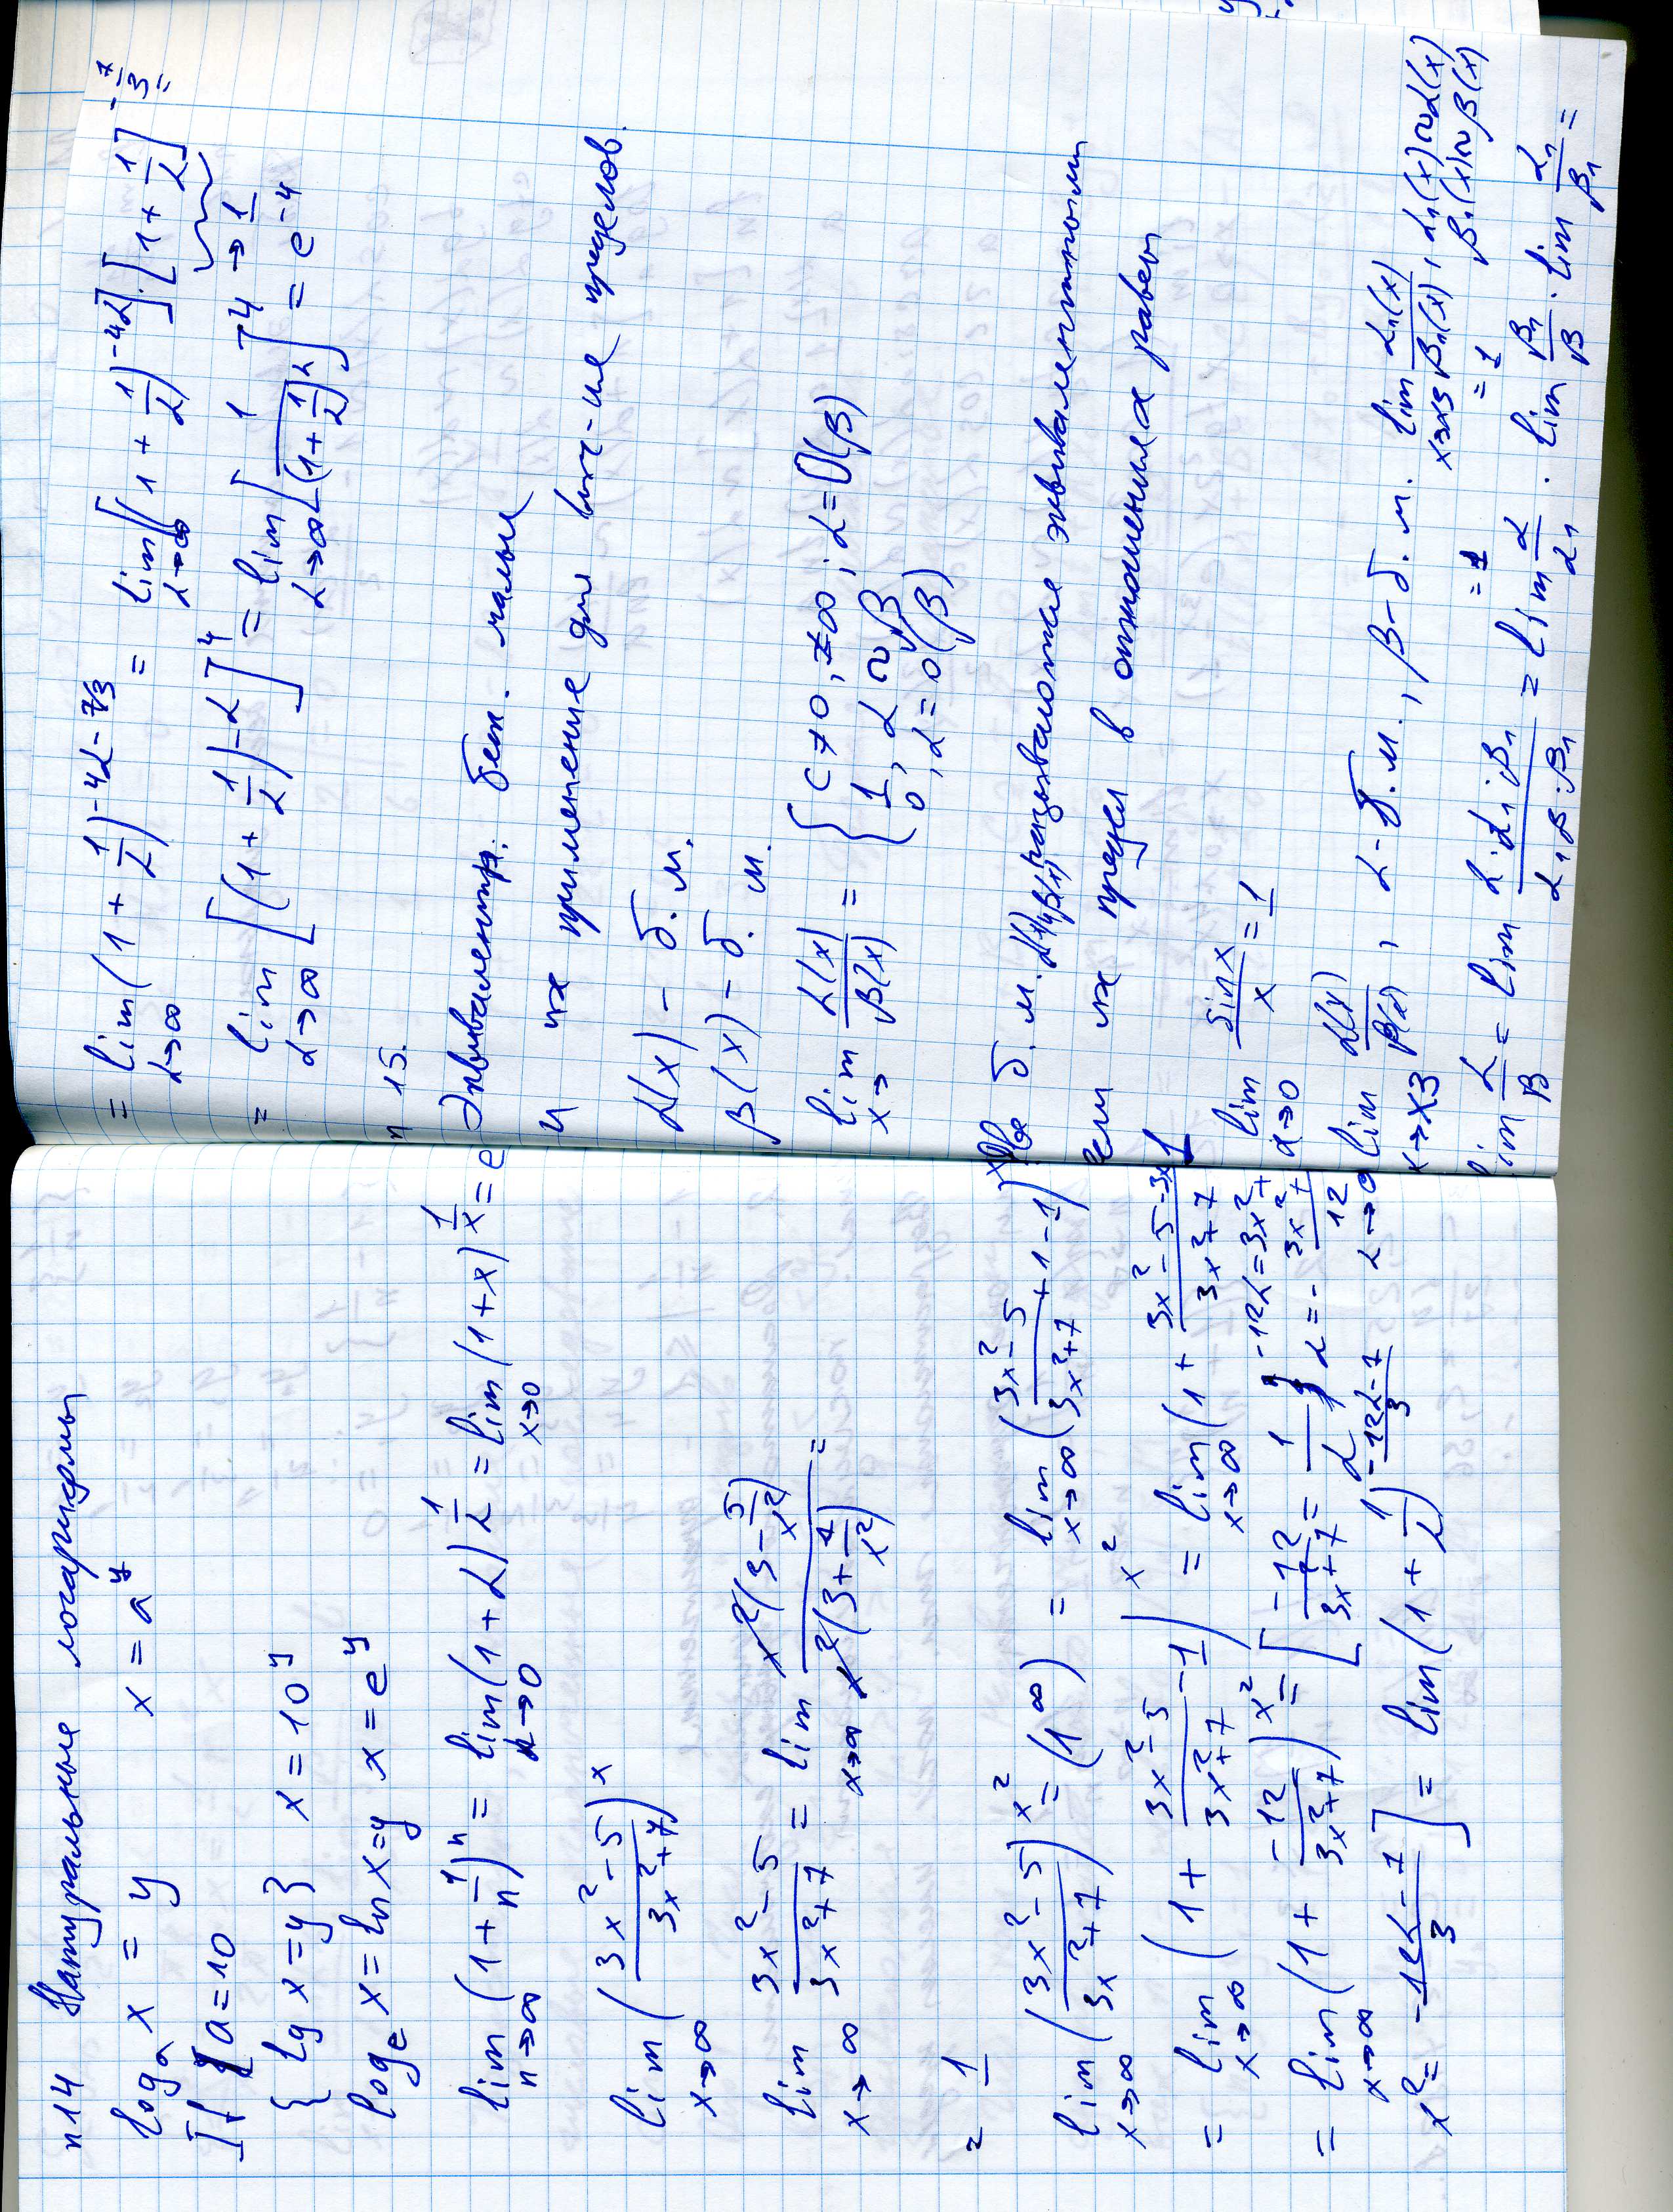 п14 Натуральные логарифмы
logₐ x = y    x = a^y
]{ a=10
{ lg x = y }    x = 10^y
logₑ x = ln x = y    x = e^y
lim n→∞ (1 + 1/n)^n = lim α→0 (1 + α)^(1/α) = lim x→0 (1 + x)^(1/x) = e
lim x→∞ ((3x² - 5)/(3x² + 7))^x
lim x→∞ (3x² - 5)/(3x² + 7) = lim x→∞ x²(3 - 5/x²)/x²(3 + 7/x²) =
= 1
lim x→∞ ((3x² - 5)/(3x² + 7))^x² = (1^∞) = lim x→∞ ((3x² - 5)/(3x² + 7) + 1 - 1)^x²
= lim x→∞ (1 + (3x² - 5)/(3x² + 7) - 1)^x² = lim x→∞ (1 + (3x² - 5 - 3x²)/(3x² + 7)
= lim x→∞ (1 + -12/(3x² + 7))^x² = [ -12/(3x² + 7) = 1/α ; -12α = 3x² + ; α = - (3x² +)/12
x² = (-12α - 7)/3 ] = lim (1 + 1/α)^((-12α - 7)/3)    α→∞
= lim α→∞ (1 + 1/α)^(-4α - 7/3) = lim α→∞ [(1 + 1/α)^(-4α)] · [1 + 1/α]^(-7/3) =
→ 1
= lim α→∞ [(1 + 1/α)^(-α)]^4 = lim α→∞ [1/(1 + 1/α)^α]^4 = e^(-4)
п 15.
Эквивалентн. беск. малые
и их применение для выч-ие пределов.
α(x) - б. м.
β(x) - б. м.
lim x→ α(x)/β(x) = { C ≠ 0, ≠ ∞ ; α = O(β)
1, α ~ β
0, α = o(β)
Две б. м. α(x) и β(x) называются эквивалентными
если их предел в отношениях равен
1
lim α→0 sin x/x = 1
lim x→x3 α(x)/β(x), α - б.м., β - б. м. lim x→x3 α₁(x)/β₁(x), α₁(x) ~ α(x)
β₁(x) ~ β(x)
= 1    = 1
lim α/β = lim (α · α₁ · β₁)/(α₁ β · β₁) = lim α/α₁ · lim β₁/β · lim α₁/β₁ =